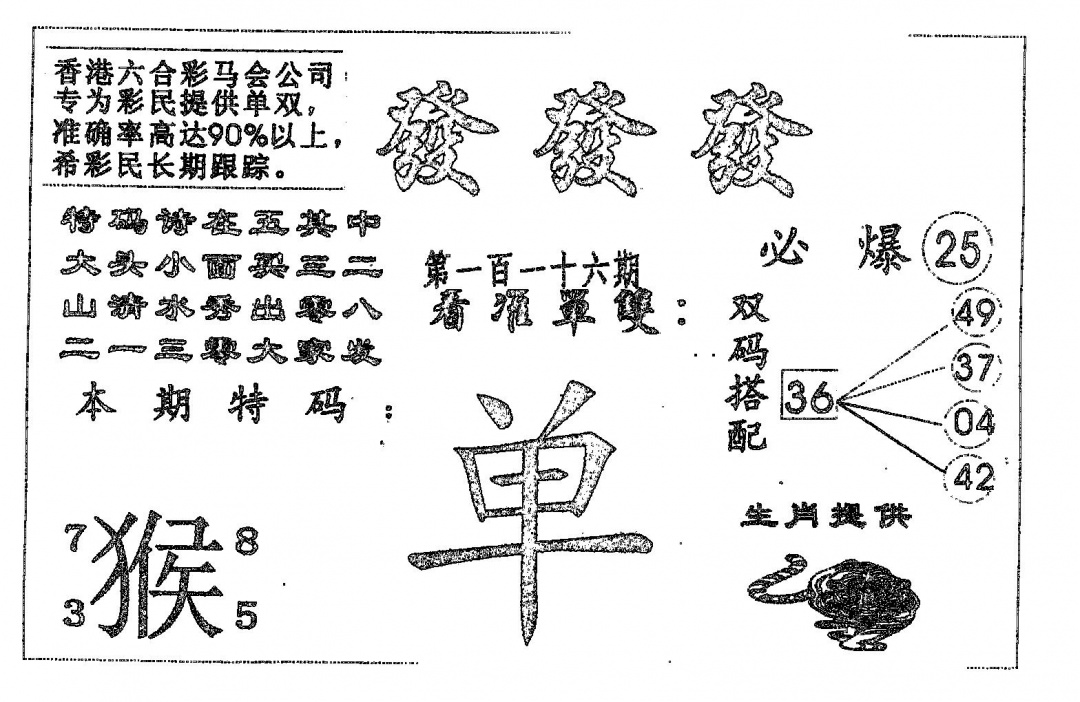 香港六合彩马会公司
专为彩民提供单双，
准确率高达90%以上，
希彩民长期跟踪。
發 發 發
特码诗在五其中
大头小面买三二
山清水秀出零八
二一三零大家发
本期特码：
7 猴 8
3 5
第一百一十六期
看准單雙：
单
必爆 25
双码搭配
36
49
37
04
42
生肖提供